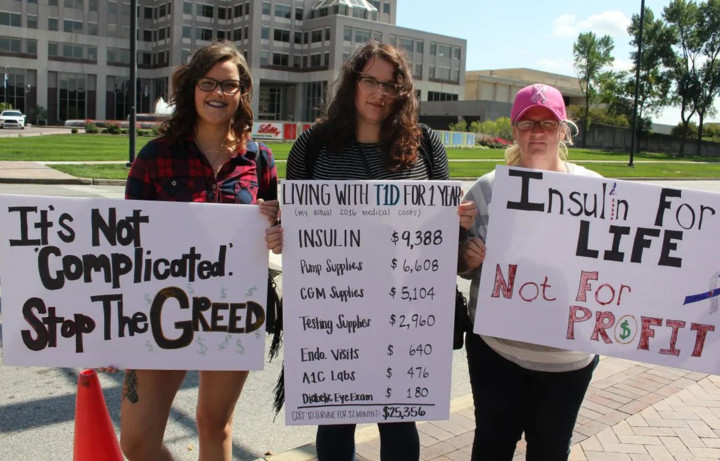 It's Not
'Complicated'.
Stop The GREED
LIVING WITH T1D FOR 1 YEAR
(my actual 2016 medical costs)
INSULIN $9,388
Pump Supplies $6,608
CGM Supplies $5,104
Testing Supplies $2,960
Endo. Visits $ 640
A1C Labs $ 476
Diabetic Eye Exam $ 180
COST TO SURVIVE FOR 12 MONTHS: $25,356
Insulin For
LIFE
Not For
PROFIT
Lilly